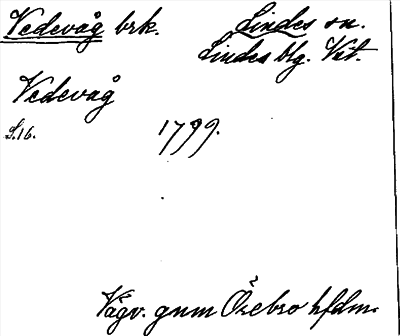 Vedevåg brk.
Lindes sn.
Lindes blg. Vst.
Vedevåg
S.16.
1799.
Vägv. gnm Örebro hfdm.